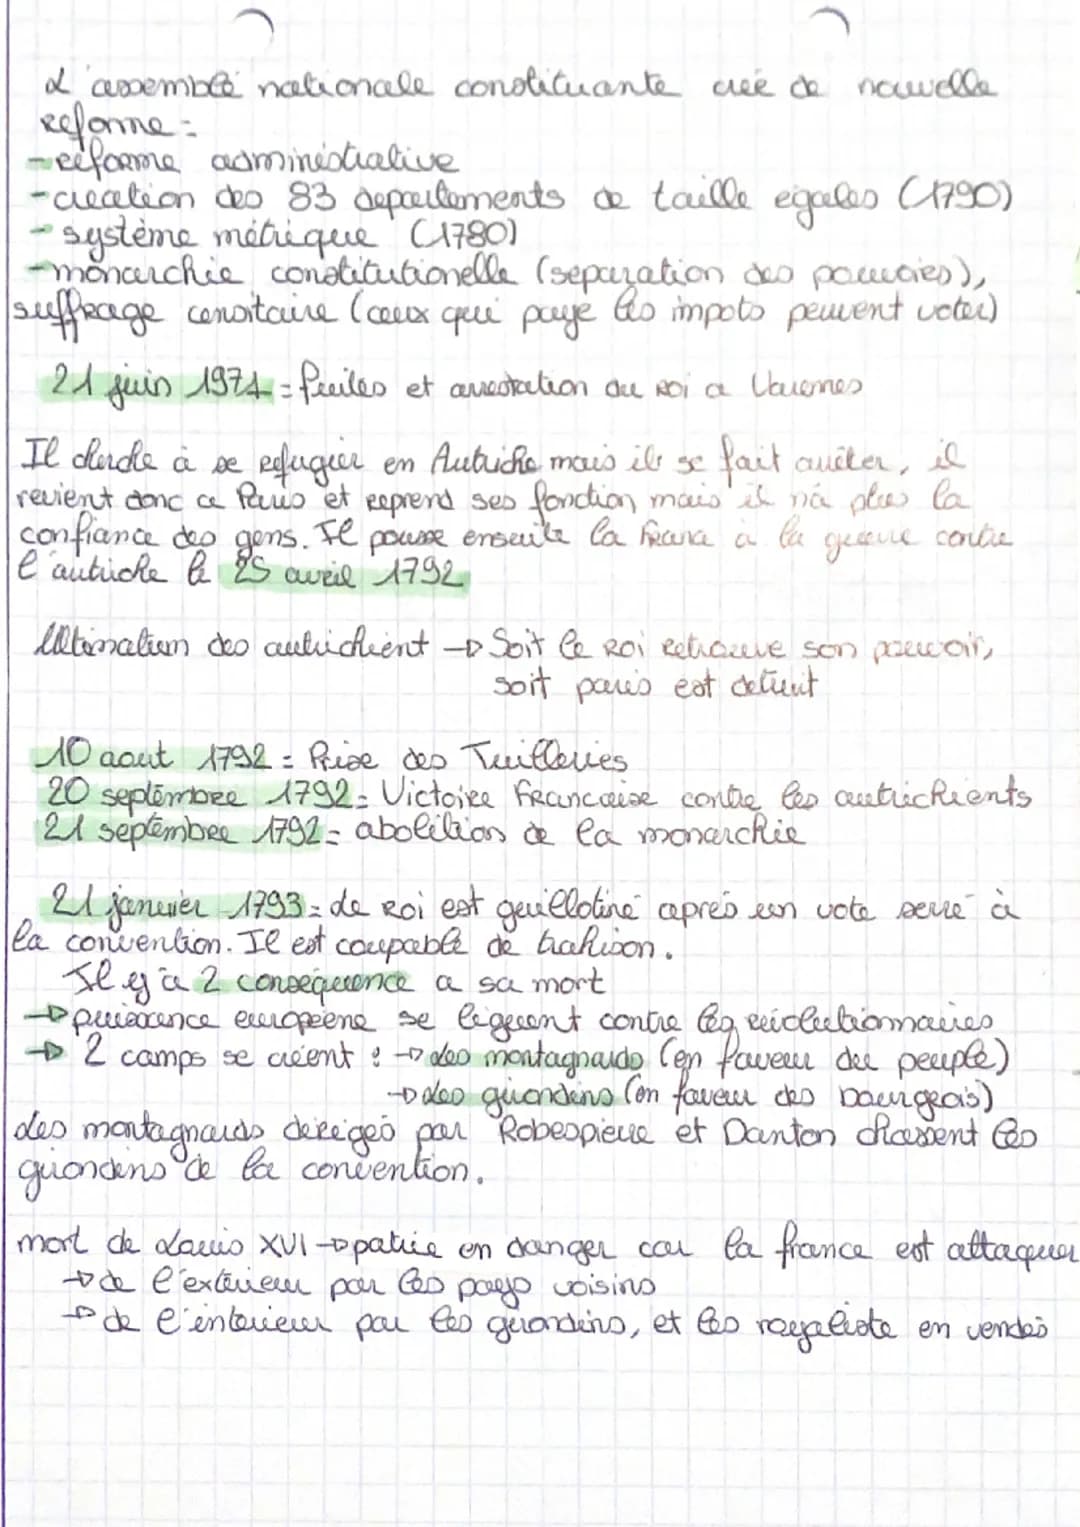 L'assemblé nationale constituante crée de nouvelle
reforme :
- reforme administrative
- creation des 83 departements de taille egales (1790)
- système métrique (1780)
- monarchie constitutionelle (separation des pouvoirs),
suffrage censitaire (ceux qui paye les impots peuvent voter)
21 juin 1971 = fuites et arrestation du roi a Varennes
Il cherche à se refugier en Autriche mais ils se fait arrêter, il
revient donc a Paris et reprend ses fonction mais il n'a plus la
confiance des gens. Il pousse ensuite la France à la guerre contre
l'autriche le 25 avril 1792
Ultimatum des autrichient → Soit le roi retrouve son pouvoir,
soit paris est detruit
10 aout 1792 = Prise des Tuilleries
20 septembre 1792 = Victoire Francaise contre les autrichients
21 septembre 1792 = abolition de la monarchie
21 janvier 1793 = Le roi est guillotiné après un vote serré à
la convention. Il est coupable de trahison.
Il y a 2 conséquence a sa mort
→ puissance europeene se liguent contre les revolutionnaires
→ 2 camps se créent : → Les montagnards (en faveur du peuple)
→ Les girondins (en faveur des bourgeois)
Les montagnards dirigés par Robespierre et Danton chassent les
girondins de la convention.
mort de Louis XVI → patrie en danger car la france est attaquer
→ de l'extérieur par les pays voisins
→ de l'interieur par les girondins, et les royaliste en vendés